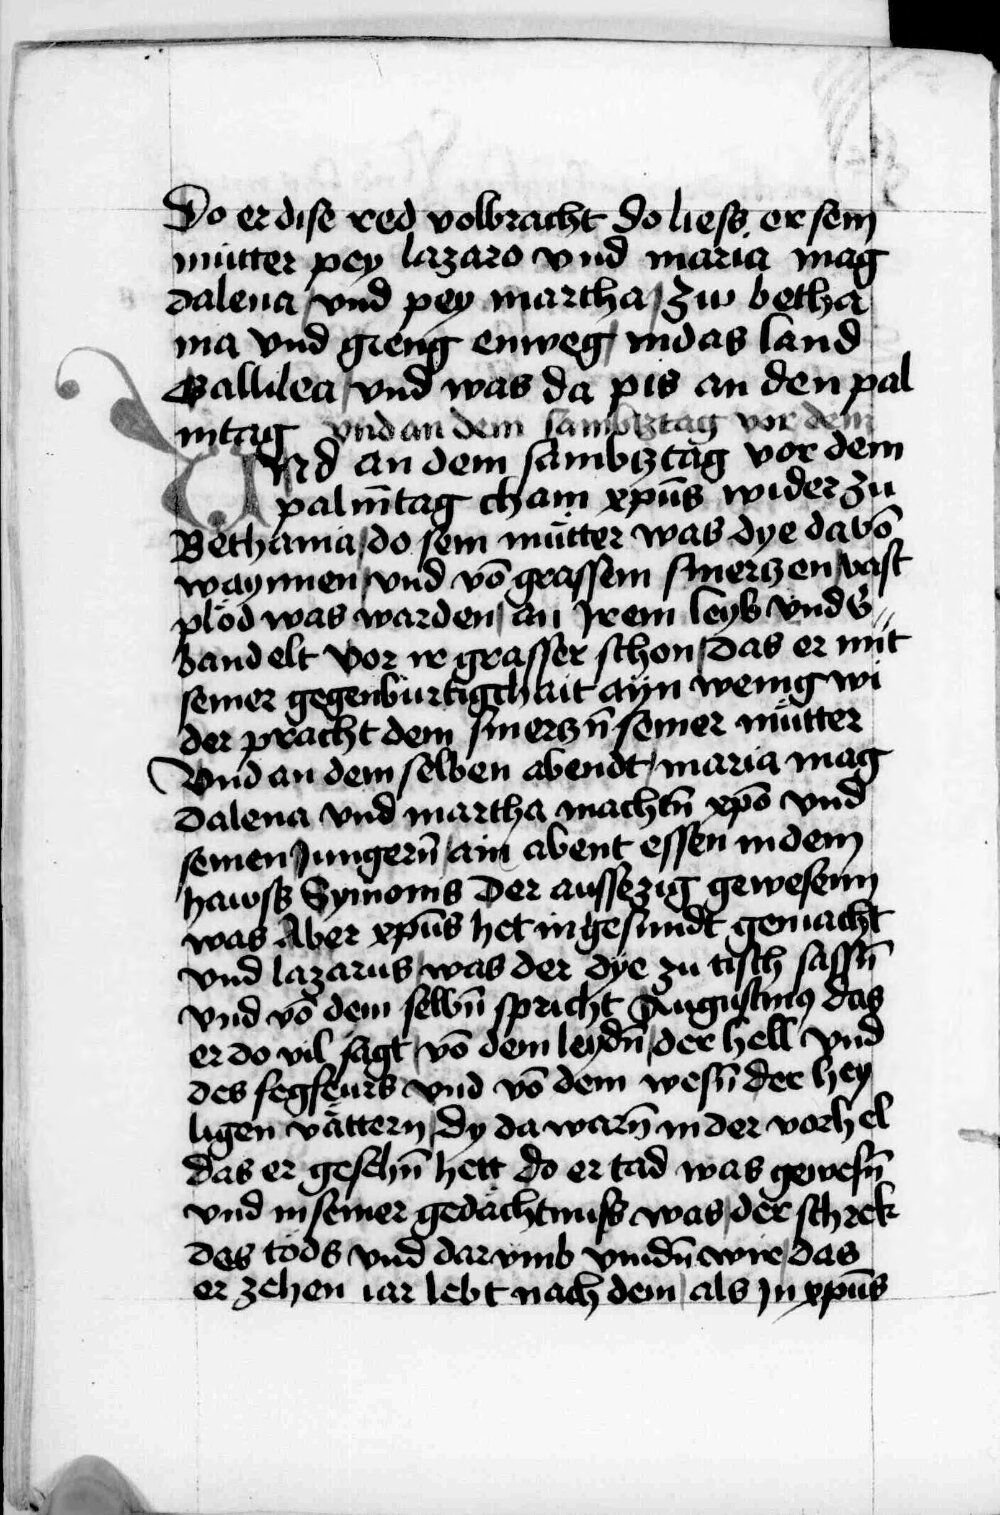 Do er dise red volbracht Do liess er sein
mutter pey lazaro vnd maria mag
dalena / vnd pey martha / Zw betha
nia vnd gieng enweg / in das land
Gallilea / vnd was da pis an den pal
mtag vnd an dem sambtztag vor dem
Vnd an dem sambtztag vor dem
palm̄tag cham xpūs wider zu
Bethania / do sein mütter was dye davō
waynnen / vnd vō grassem smertzen / vast
plöd was warden / an Jrem leyb vnd v̈ //
bandelt vor ir grasser schon / Das er mit
seiner gegenburtigchait ayn wenig wi
der pracht dem smertzn̄ seiner mütter
Vnd an dem selben abendt / maria mag
dalena vnd martha machtn̄ xpō vnd
seinen Jungern̄ / ain abent essen in dem
hawss Symonis Der aussezig gewesenn
was Aber xpūs het in gesundt gemacht
vnd lazarus / was der dye zu tisch sassn̄
vnd vō dem selbn̄ spricht Augustinꝰ das
er do vil sagt / vō dem leydn̄ / der hell vnd
des fegfeurs vnd vō dem wesn̄ der hey
ligen vättern / Dy da warn̄ in der vorhel
das er gesehn̄ hett do er tad was gewesn̄
vnd in seiner gedächtnuss was / der schrek
des tods vnd dar vmb vindn̄ wir / das
er zehen iar lebt nach dem / als Jn xpūs